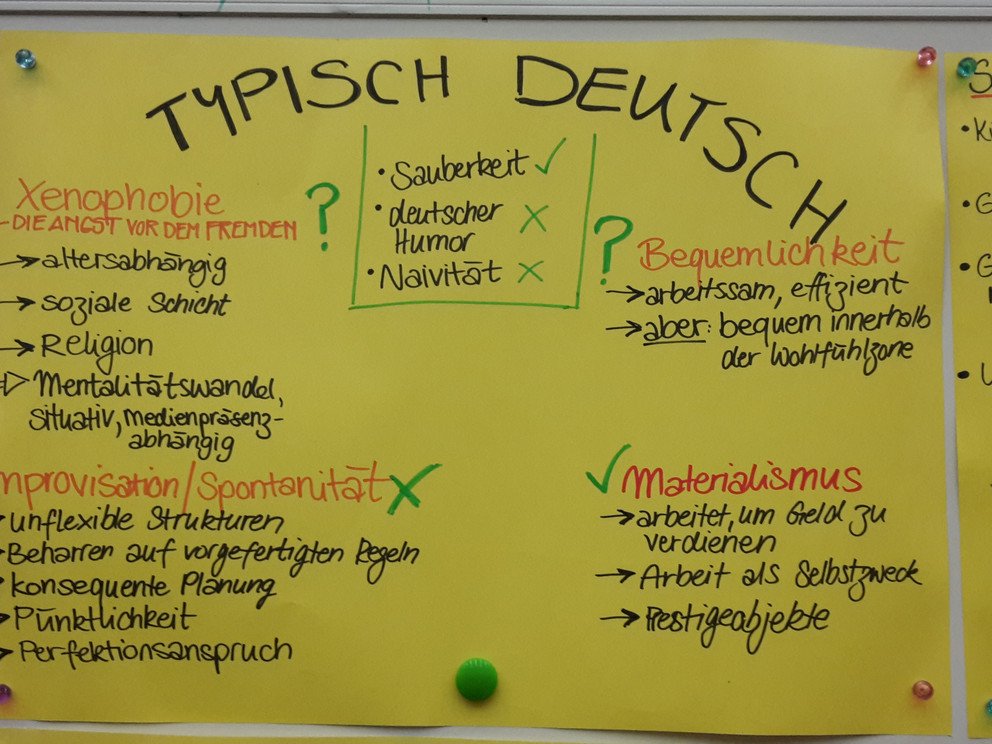 TYPISCH DEUTSCH
• Sauberkeit ✓
• deutscher X
Humor
• Naivität X
Xenophobie ?
- DIE ANGST VOR DEM FREMDEN
→ altersabhängig
→ soziale Schicht
→ Religion
⇒ Mentalitätswandel,
situativ, medienpräsenz-
abhängig
? Bequemlichkeit
→ arbeitssam, effizient
→ aber: bequem innerhalb
der Wohlfühlzone
mprovisation/Spontanität X
• unflexible Strukturen
• Beharren auf vorgefertigten Regeln
• konsequente Planung
• Pünktlichkeit
• Perfektionsanspruch
✓ Materialismus
→ arbeitet, um Geld zu
verdienen
→ Arbeit als Selbstzweck
→ Prestigeobjekte